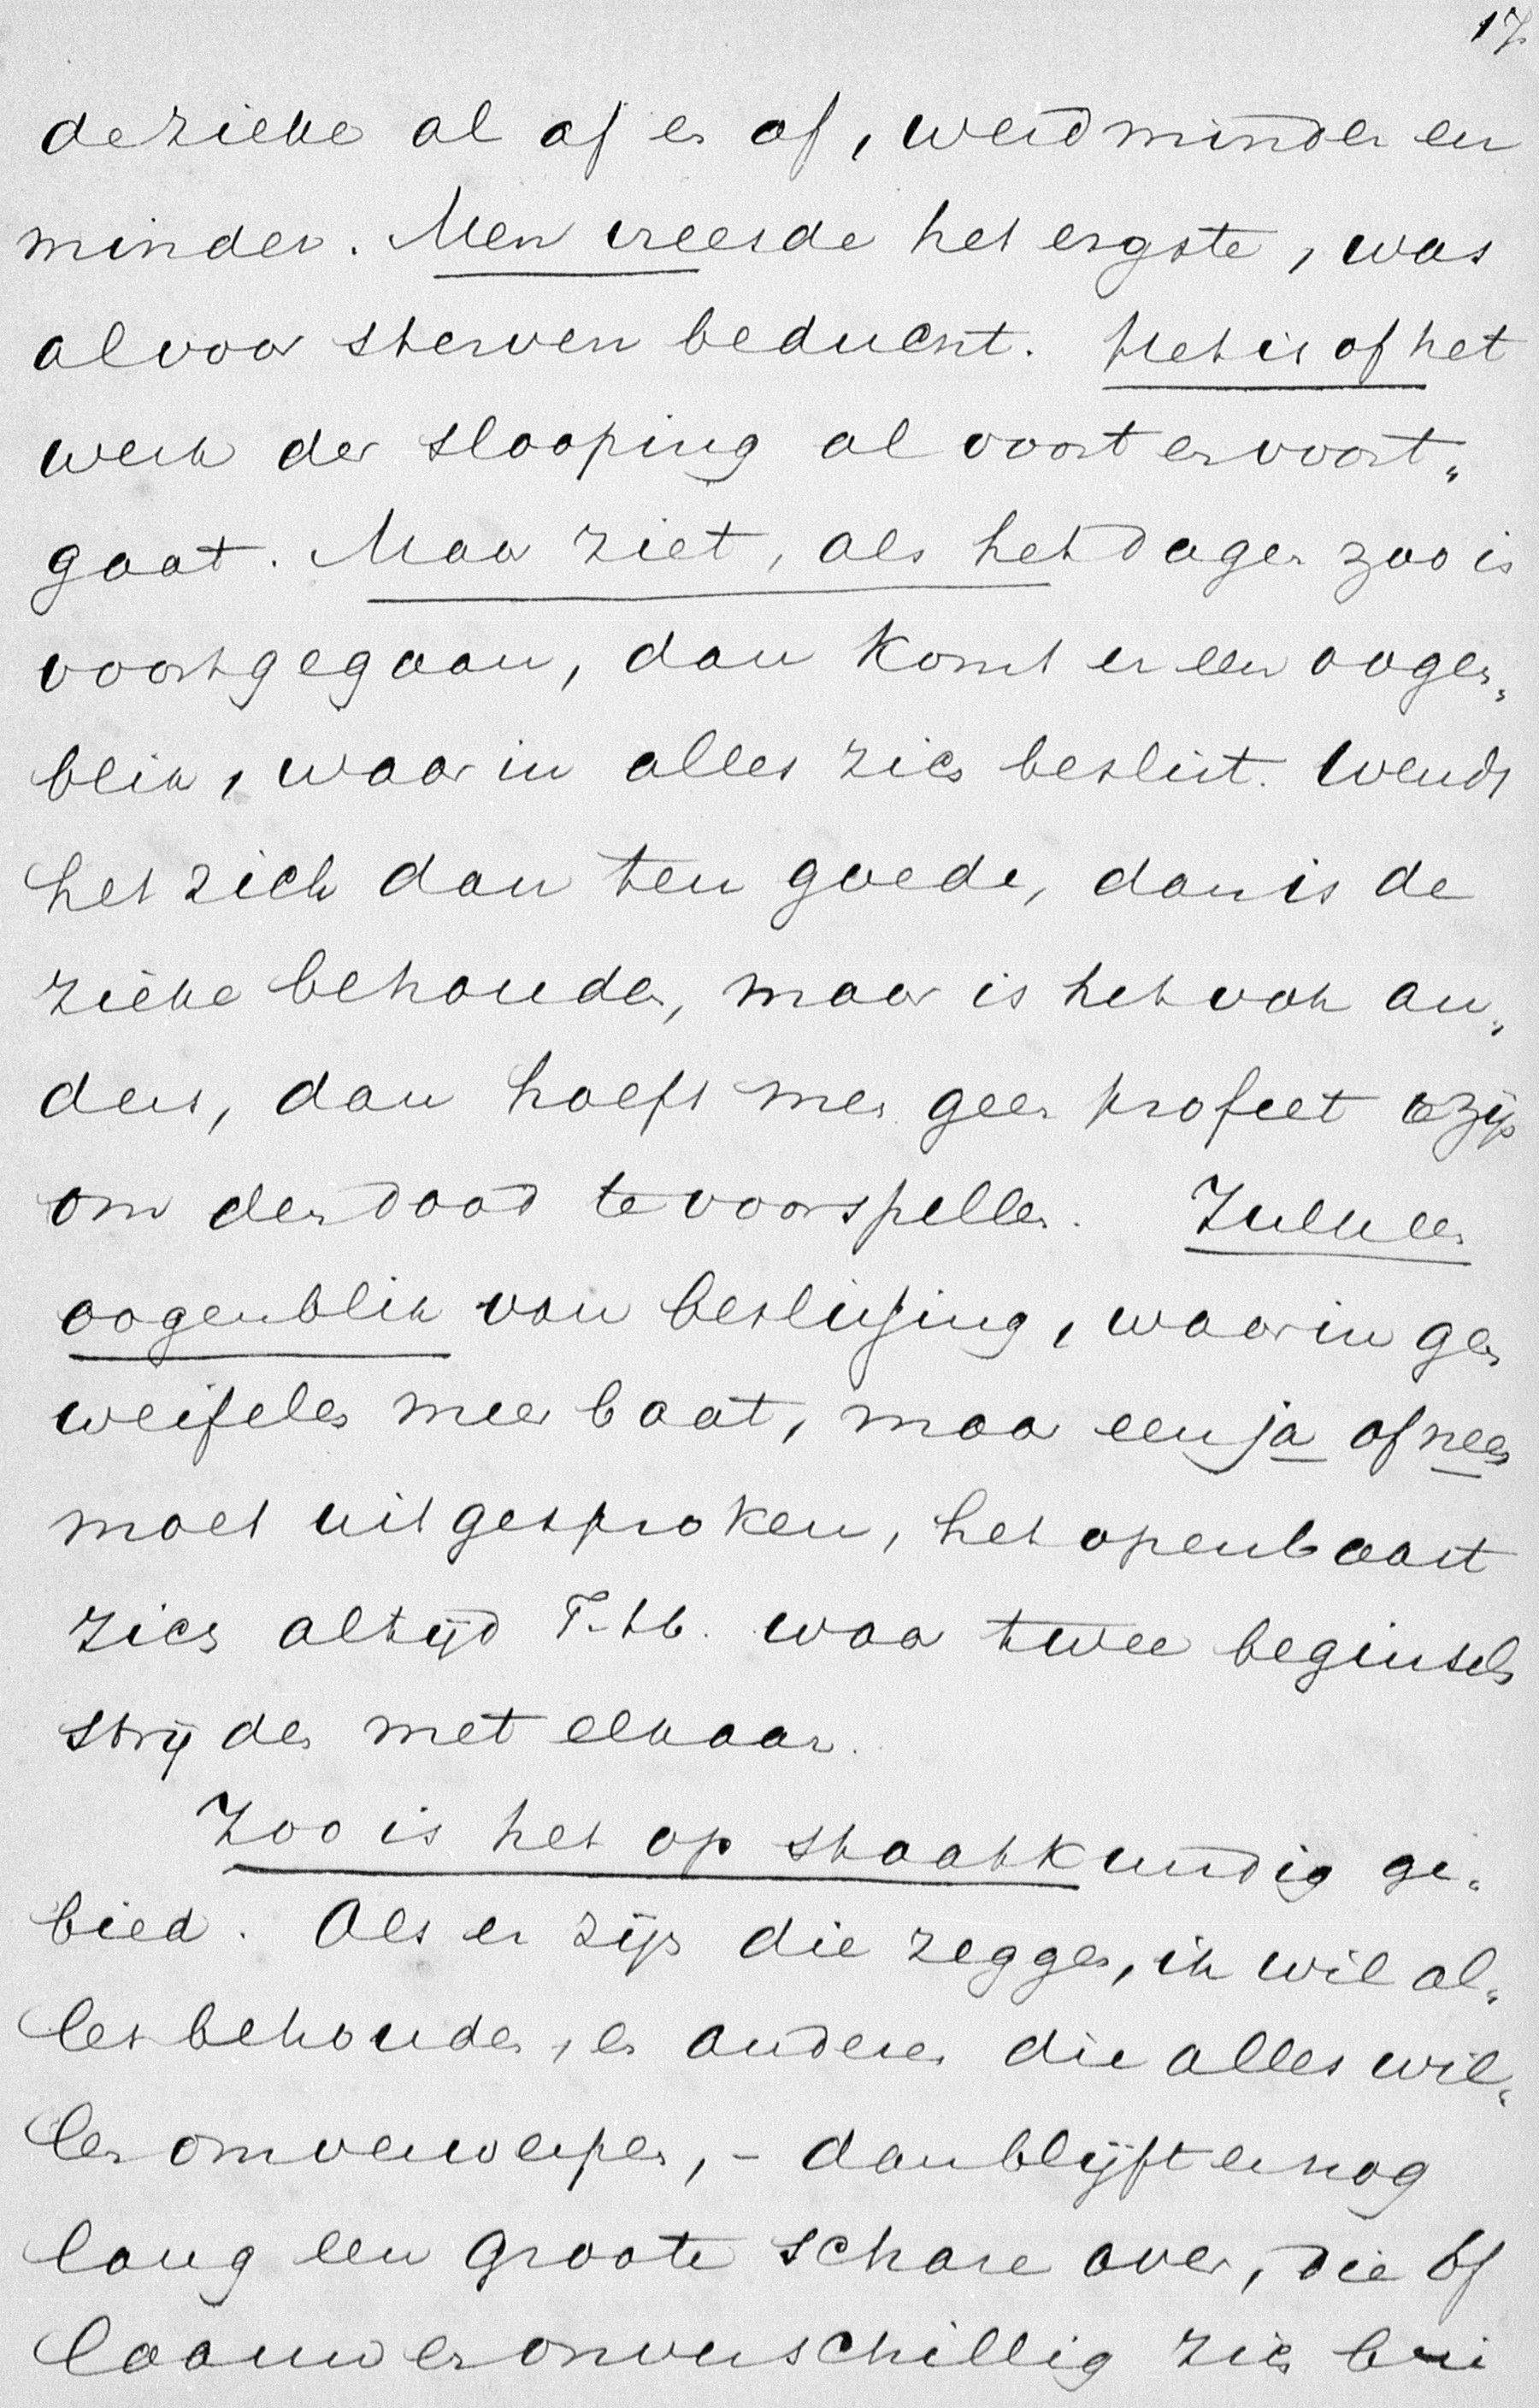 17.
de zieke al af en af, werd minder en
minder. Men vreesde het ergste, was
al voor sterven beducht. Het is of het
werk der slooping al voort en voort„
gaat. Maar ziet, als het dagen zoo is
voortgegaan, dan komt er een oogen„
blik, waarin alles zich beslist. Wendt
het zich dan ten goede, dan is de
zieke behouden, maar is het ook an„
ders, dan hoeft men geen profeet te zijn
om den dood te voorspellen. Zulk een
oogenblik van beslissing, waarin geen
weifelen meer baat, maar een ja of neen
moet uitgesproken, het openbaart
zich altijd T. H. waar twee beginsels
strijden met elkaar.
Zoo is het op staatkundig ge„
bied. Als er zijn die zeggen, ik wil al„
les behouden, en anderen die alles wil„
len omverwerpen, – dan blijft er nog
lang een groote schare over, die òf
laauw en onverschillig zich